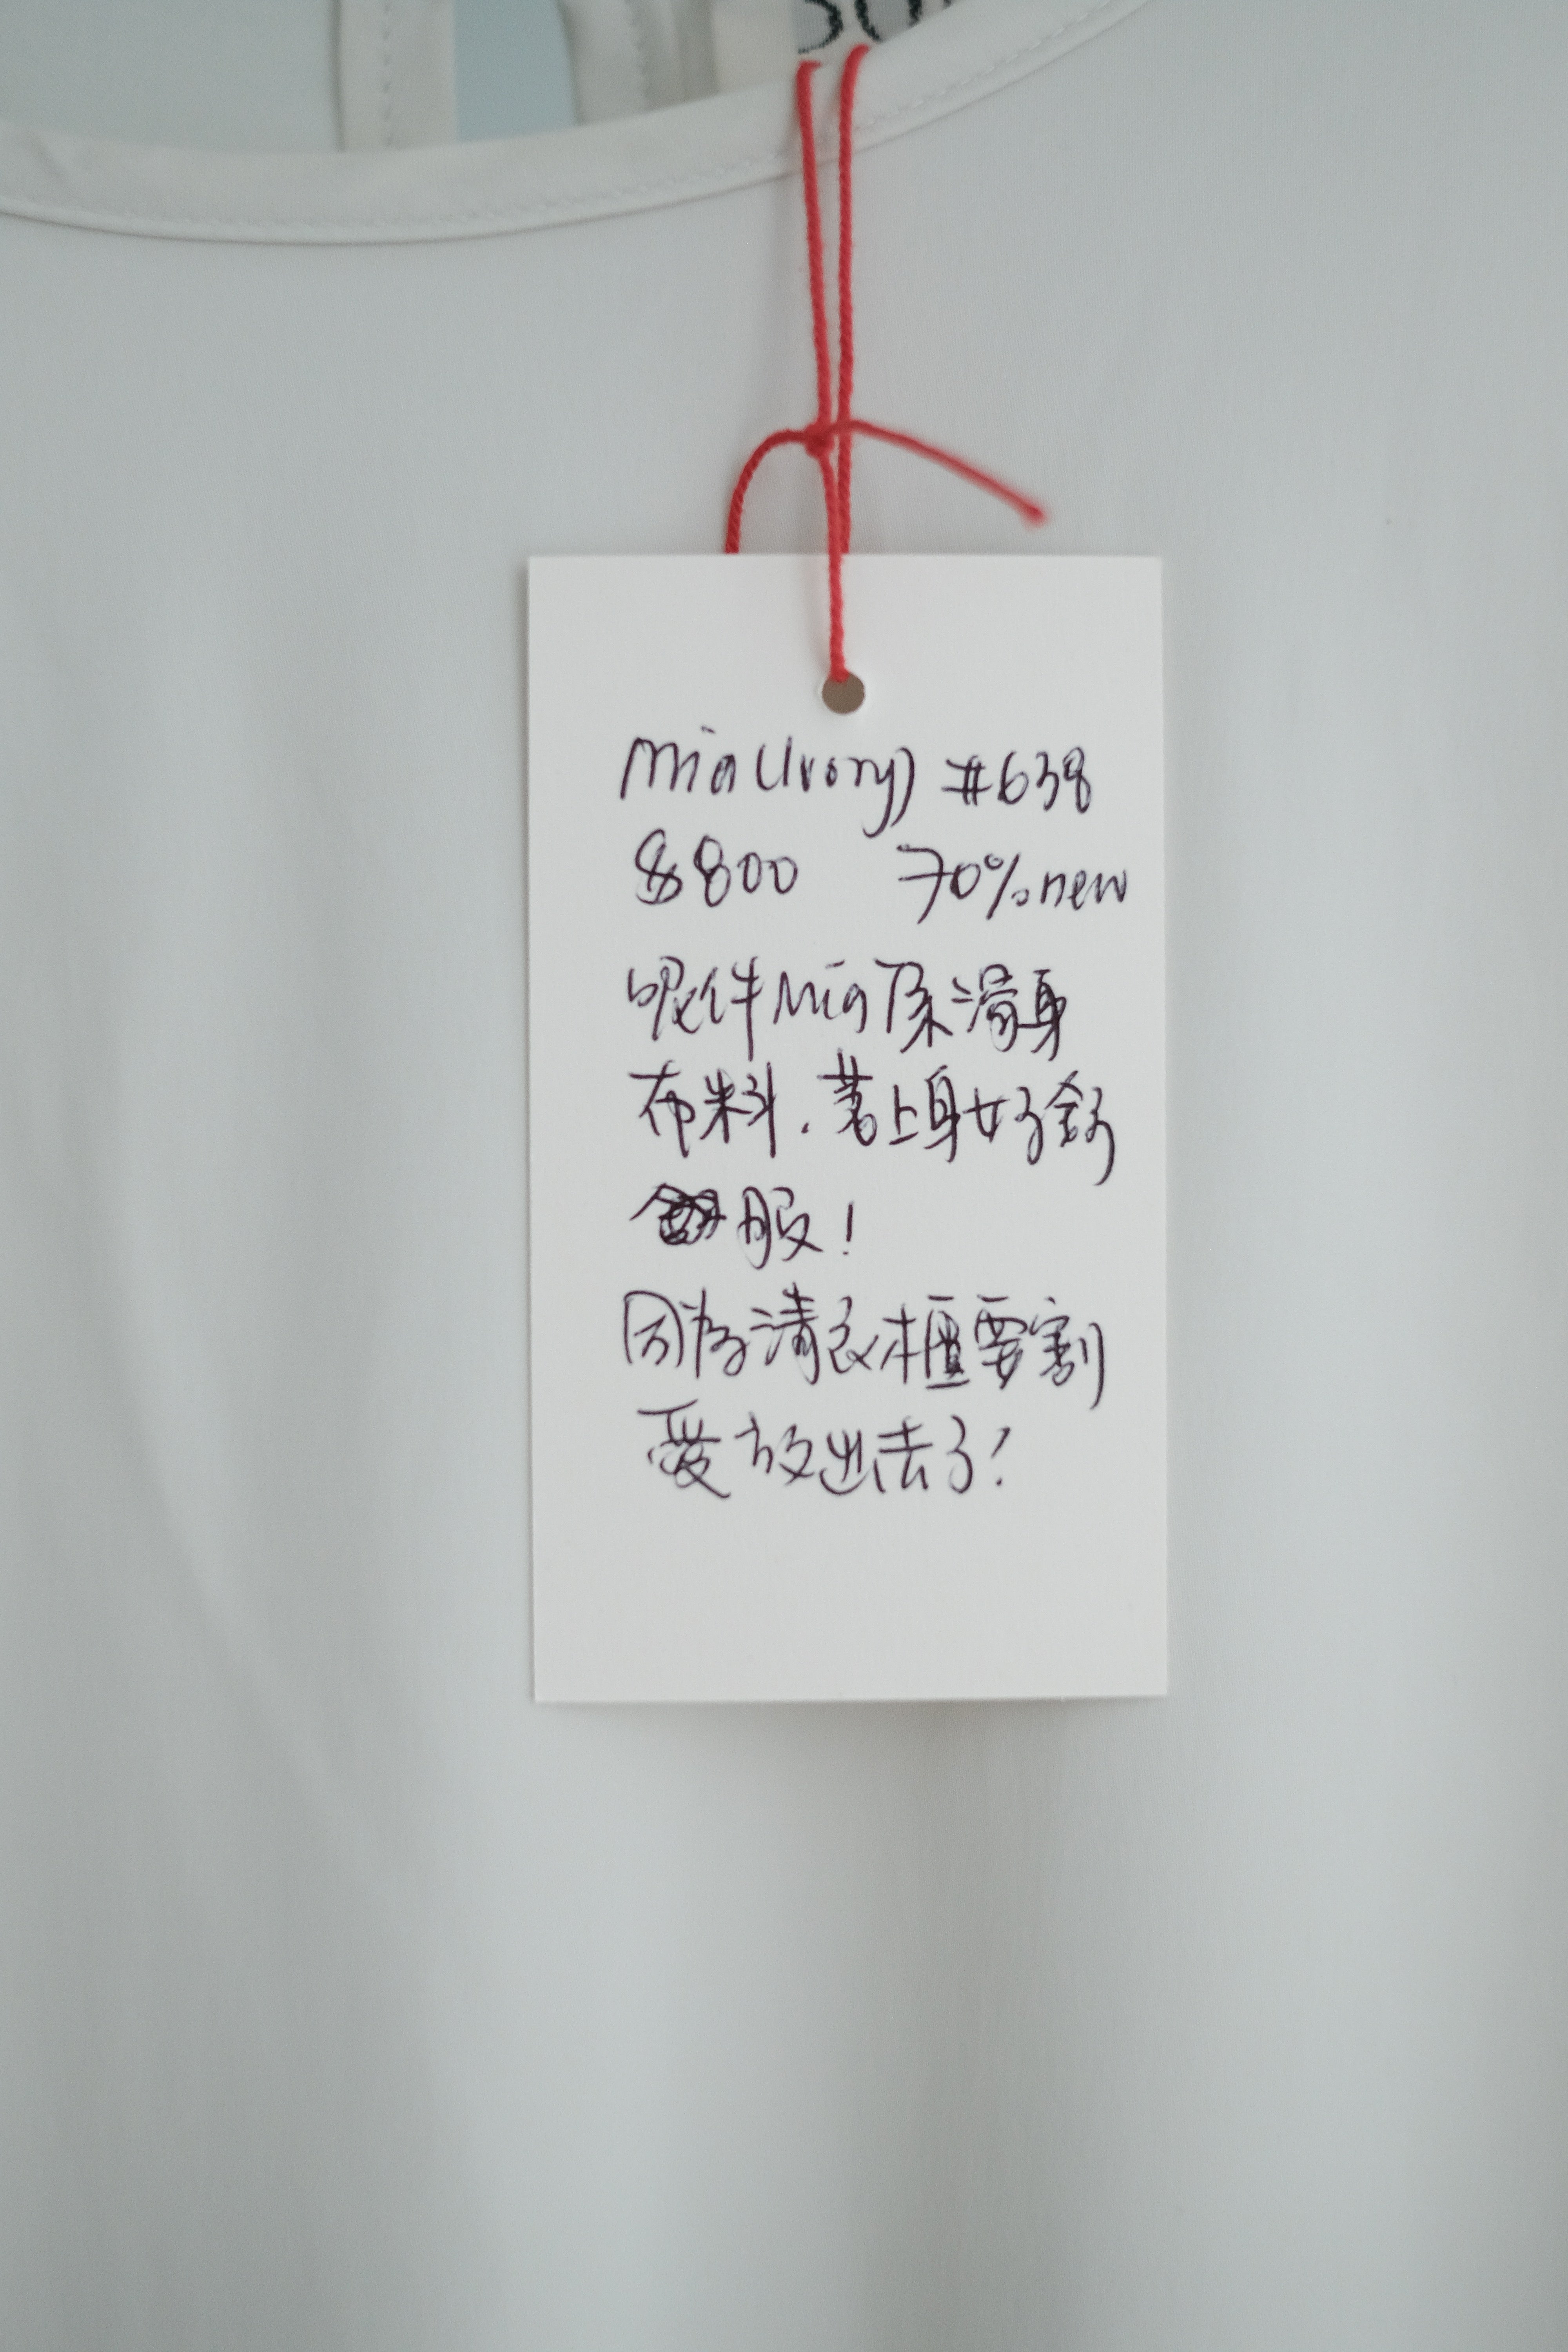 Mia (Ivory) #638
$800 70% new
呢件Mia系滑身
布料.著上身好舒
服!
因為清衣櫃要割
愛放出去了!